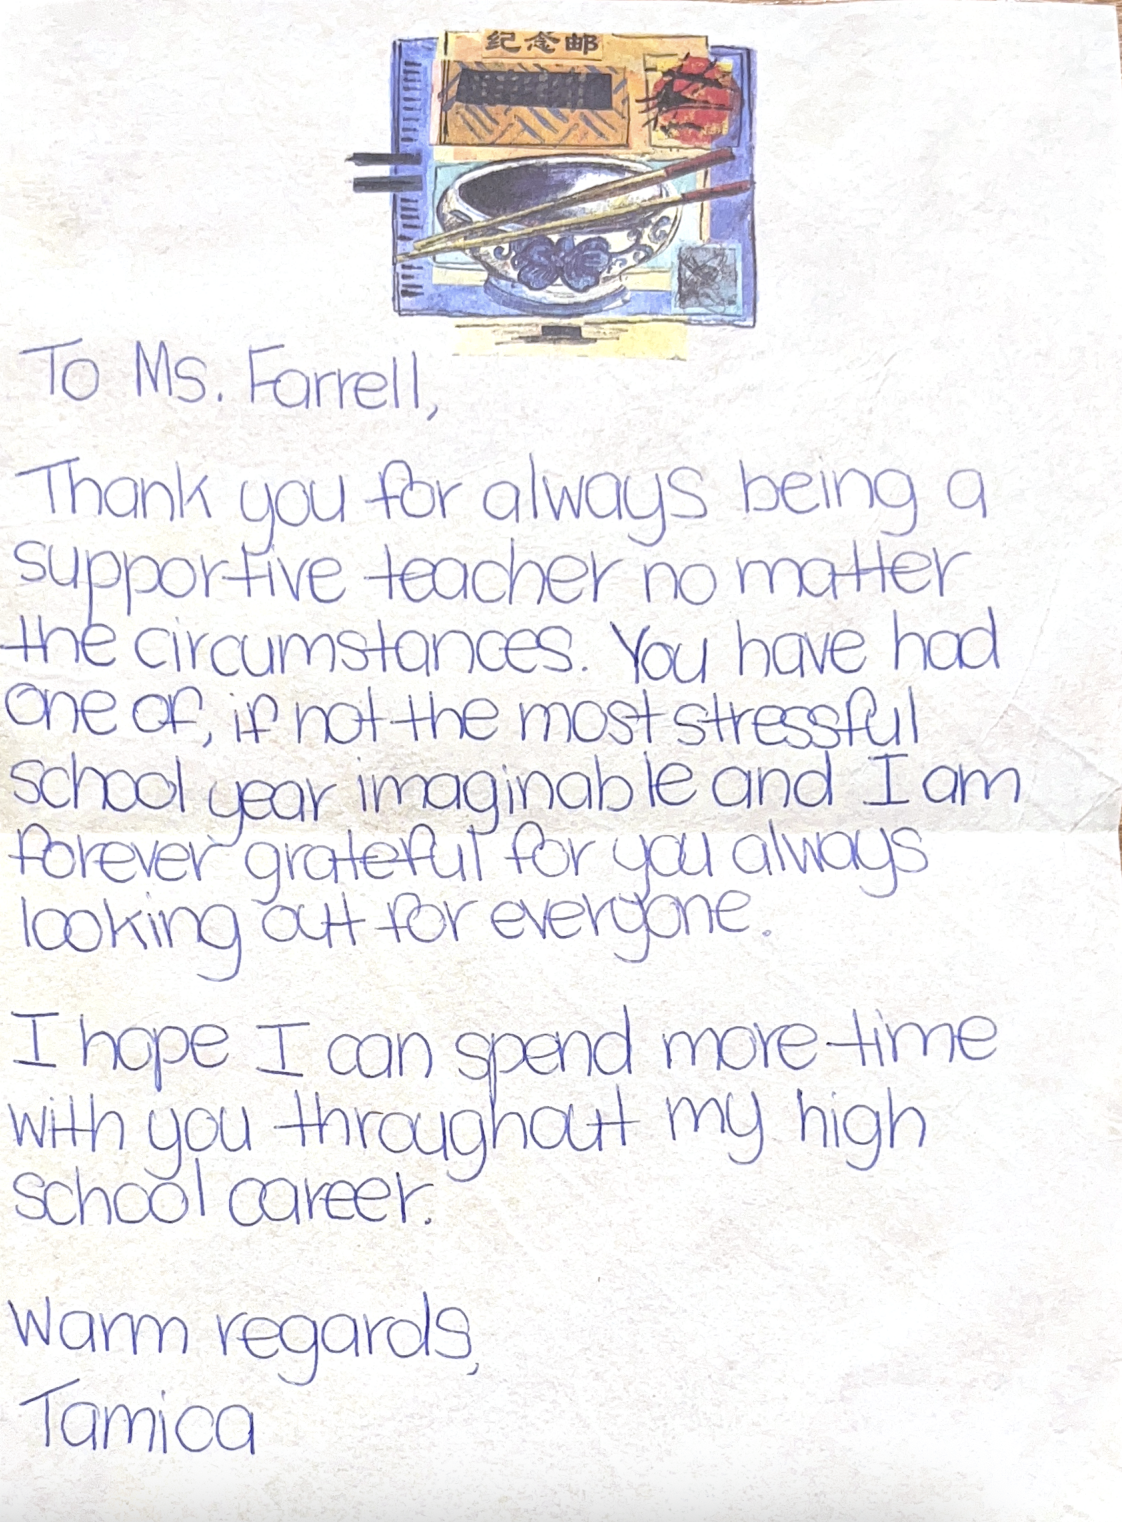 纪念邮
To Ms. Farrell,
Thank you for always being a
supportive teacher no matter
the circumstances. You have had
one of, if not the most stressful
school year imaginable and I am
forever grateful for you always
looking out for everyone.
I hope I can spend more time
with you throughout my high
school career.
Warm regards,
Tamica